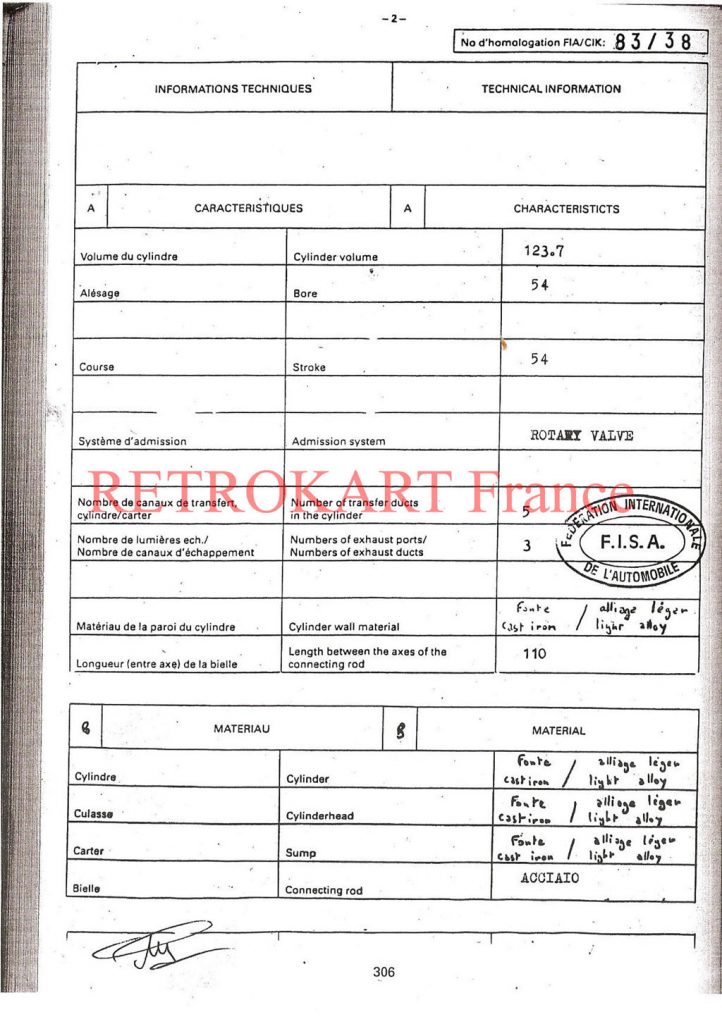 -2-
No d'homologation FIA/CIK: 83/38
INFORMATIONS TECHNIQUES TECHNICAL INFORMATION
A CARACTERISTIQUES A CHARACTERISTICTS
Volume du cylindre Cylinder volume 123.7
Alésage Bore 54
Course Stroke 54
Système d'admission Admission system ROTARY VALVE
RETROKART France
Nombre de canaux de transfert, Number of transfer ducts
cylindre/carter in the cylinder 5
Nombre de lumières ech./ Numbers of exhaust ports/
Nombre de canaux d'échappement Numbers of exhaust ducts 3
FEDERATION INTERNATIONALE
F.I.S.A.
DE L'AUTOMOBILE
Fonte / alliage léger
Matériau de la paroi du cylindre Cylinder wall material Cast iron / light alloy
Length between the axes of the 110
Longueur (entre axe) de la bielle connecting rod
B MATERIAU B MATERIAL
Fonte / alliage léger
Cylindre Cylinder cast iron / light alloy
Fonte / alliage léger
Culasse Cylinderhead cast iron / light alloy
Fonte / alliage léger
Carter Sump cast iron / light alloy
Bielle Connecting rod ACCIAIO
306